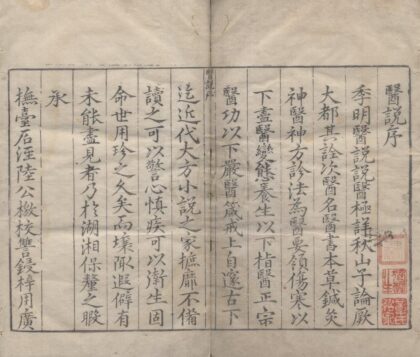 醫說序
季明醫說說醫極詳秋山子論厥
大都其詮次醫名醫書本草鍼灸
神醫神方診法為醫要領傷寒以
下盡醫變態養生以下指醫正宗
醫功以下嚴醫箴戒上自邃古下
醫說序
迄近代大方小說之家摭靡不備
讀之可以警心慎疾可以衛生固
命世用珍之久矣而壤陬遐僻有
未能盡見者乃於湖湘保釐之暇
承
撫臺石涇陸公檄校讐鋟梓用廣